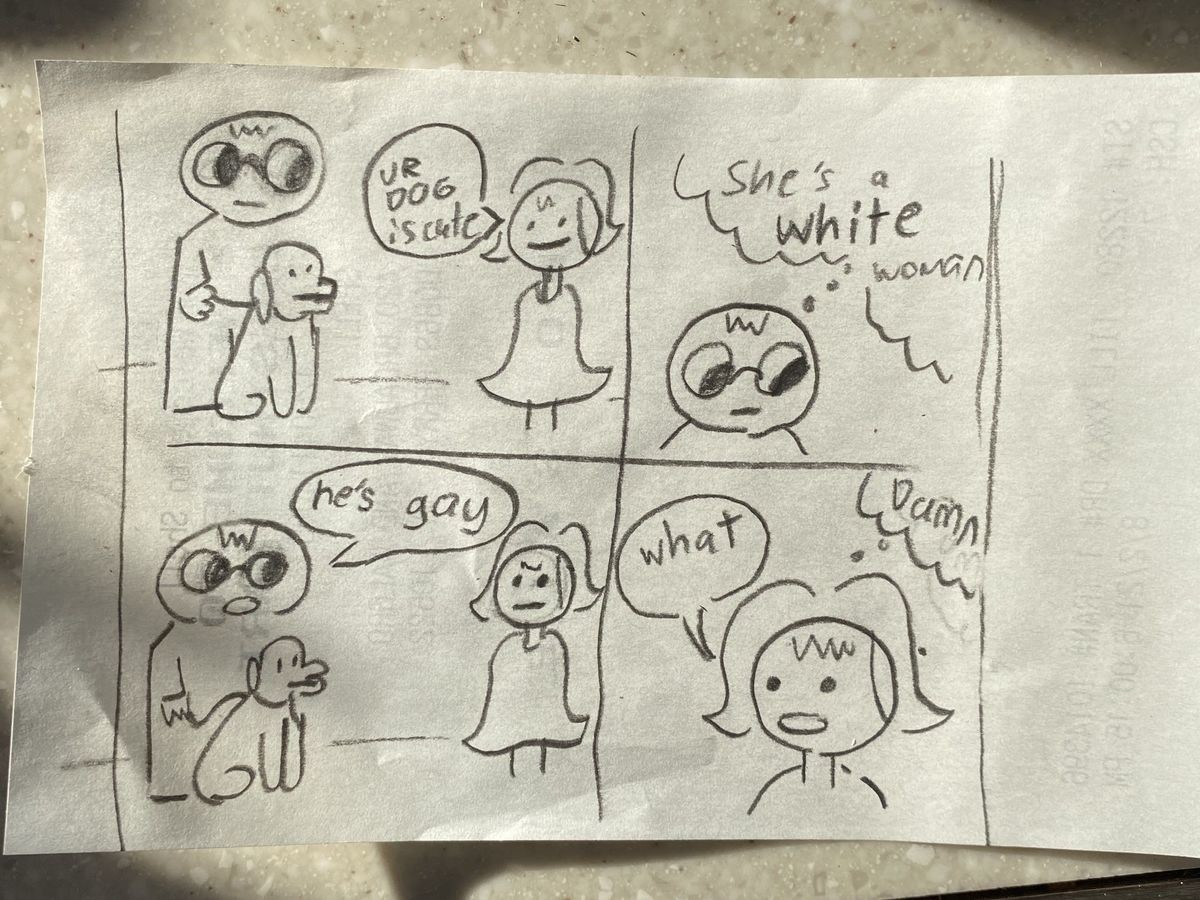 UR
DOG
is cute
She's a
white
woman
he's gay
what
Damn